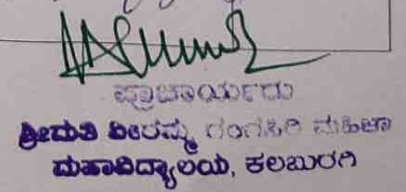 ಪ್ರಾಚಾರ್ಯರು
ಶ್ರೀಮತಿ ವೀರಮ್ಮ ಗಂಗಸಿರಿ ಮಹಿಳಾ
ಮಹಾವಿದ್ಯಾಲಯ, ಕಲಬುರಗಿ